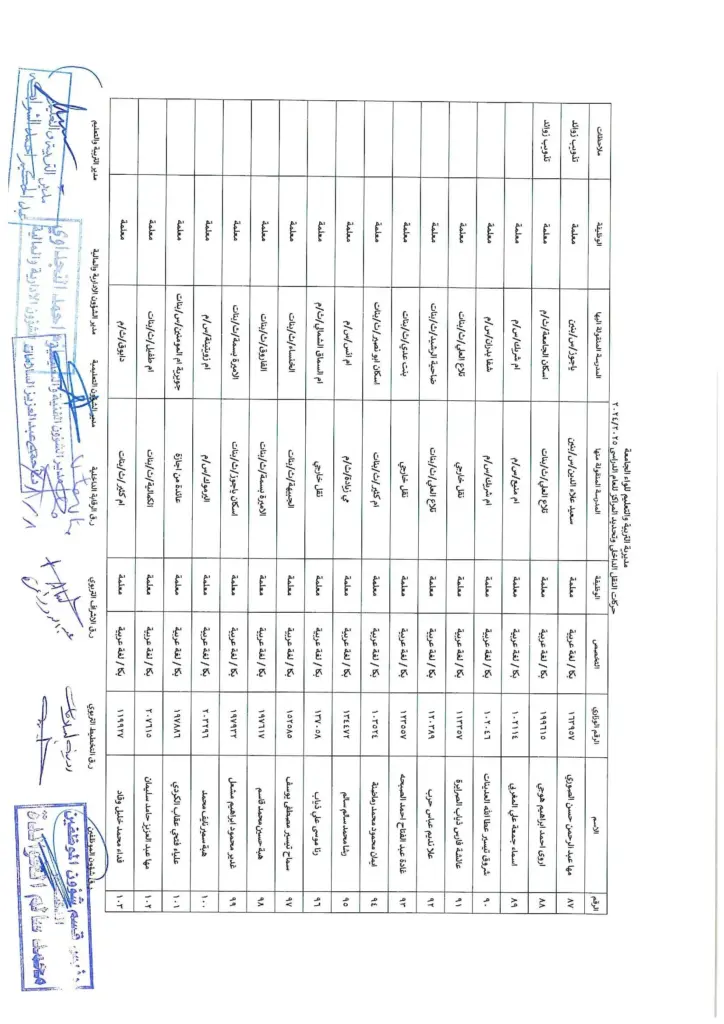 مديرية التربية والتعليم للواء الجامعة
حركات النقل الداخلي وتحديد المراكز للعام الدراسي ٢٠٢٤/٢٠٢٥
الرقم الاسم الرقم الوزاري التخصص الوظيفة المدرسة المنقولة منها المدرسة المنقولة اليها الوظيفة ملاحظات
٨٧ مها عبد الرحمن حسن الصوري ١٦٣٩٥٧ بكا / لغة عربية معلمة سعيد علاء الدين/س/بنين ياجوز/س/بنين معلمة تذويب زوائد
٨٨ اروى احمد ابراهيم هوجي ١٩٩٦١٥ بكا / لغة عربية معلمة تلاع العلي/ث/بنات اسكان الجامعة/ث/م معلمة تذويب زوائد
٨٩ اسماء جمعة علي المغربي ١٠٢١١٤ بكا / لغة عربية معلمة ام منيع/س/م ام شريك/س/م معلمة
٩٠ شروق تيسير عطا الله العدينات ١٠٢٠٤٦ بكا / لغة عربية معلمة ام شريك/س/م شفا بدران/س/م معلمة
٩١ عائشة فارس ذياب الصرايرة ١١٣٢٥٧ بكا / لغة عربية معلمة نقل خارجي تلاع العلي/ث/بنات معلمة
٩٢ علا نديم عباس حرب ١٢٠٣٨٩ بكا / لغة عربية معلمة تلاع العلي/ث/بنات ضاحية الرشيد/ث/بنات معلمة
٩٣ غادة عبد الفتاح احمد الصبيحه ١٢٣٥٥٧ بكا / لغة عربية معلمة نقل خارجي بنت عدي/ث/بنات معلمة
٩٤ ايمان محمود محمد رماضنة ١٠٣٥٢٤ بكا / لغة عربية معلمة ام كثير/ث/بنات اسكان ابو نصير/ث/بنات معلمة
٩٥ رشا محمد سالم سالم ١٣٤٤٧٢ بكا / لغة عربية معلمة بي زيادة/ث/م ام انس/س/م معلمة
٩٦ رنا موسى علي ذياب ١٣٧٠٥٨ بكا / لغة عربية معلمة نقل خارجي ام السماق الشمالي/ث/م معلمة
٩٧ سماح تيسير مصطفى يوسف ١٥٢٥٨٥ بكا / لغة عربية معلمة الجبيهة/ث/بنات الخنساء/ث/بنات معلمة
٩٨ هبة حسين محمد قاسم ١٩٧٦١٧ بكا / لغة عربية معلمة الاميرة بسمة/ث/بنات الفاروق/ث/بنات معلمة
٩٩ غدير محمود ابراهيم مشعل ١٩٧٩٣٢ بكا / لغة عربية معلمة اسكان ياجوز/ث/بنات الاميرة بسمة/ث/بنات معلمة
١٠٠ هبة سمير نايف محمد ٢٠٣٢٩٦ بكا / لغة عربية معلمة اليرموك/س/م ام زويتينة/س/م معلمة
١٠١ علياء فتحي عقاب الكردي ١٩٧٨٨٦ بكا / لغة عربية معلمة عائدة من اجازة جويرية ام المومنين/س/بنات معلمة
١٠٢ مها عبد العزيز حامد سليمان ٢٠٧٦١٥ بكا / لغة عربية معلمة الكمالية/ث/بنات ام طفيل/ث/بنات معلمة
١٠٣ فداء محمد خليل وقاد ١١٩٩٢٧ بكا / لغة عربية معلمة ام كثير/ث/بنات دابوق/ث/م معلمة
ر.ق شؤون الموظفين ر.ق التخطيط التربوي ر.ق الاشراف التربوي ر.ق الرقابة الداخلية مدير الشؤون التعليمية مدير الشؤون الادارية والمالية مدير التربية والتعليم
رئيس قسم شؤون الموظفين
مدير الشؤون الفنية والتعليمية
احمد النجداوي
الشؤون الادارية والمالية
مدير التربية والتعليم